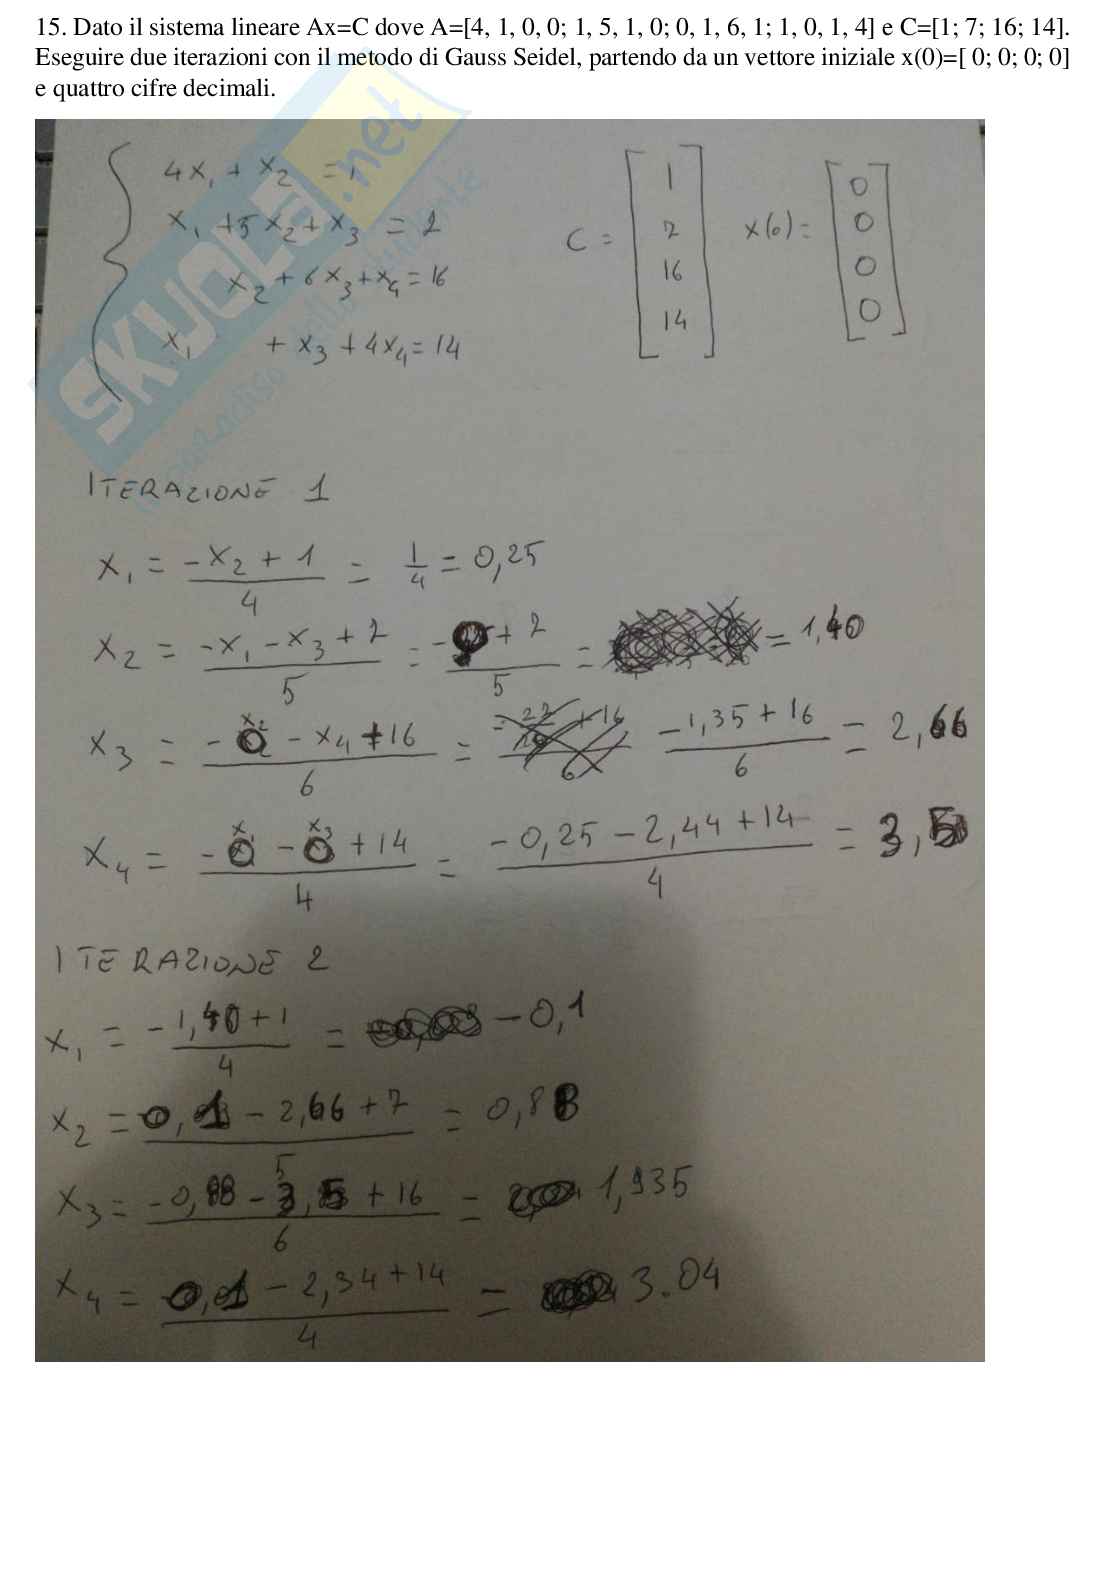 15. Dato il sistema lineare Ax=C dove A=[4, 1, 0, 0; 1, 5, 1, 0; 0, 1, 6, 1; 1, 0, 1, 4] e C=[1; 7; 16; 14].
Eseguire due iterazioni con il metodo di Gauss Seidel, partendo da un vettore iniziale x(0)=[ 0; 0; 0; 0]
e quattro cifre decimali.
SKUOLA.net
4x₁ + x₂ = 1
x₁ + 5x₂ + x₃ = 7
x₂ + 6x₃ + x₄ = 16
x₁ + x₃ + 4x₄ = 14
C = [1 7 16 14] x(0) = [0 0 0 0]
ITERAZIONE 1
x₁ = (-x₂ + 1)/4 = 1/4 = 0,25
x₂ = (-x₁ - x₃ + 7)/5 = (-0 + 7)/5 = = 1,40
x₃ = (-0 - x₄ + 16)/6 = (-1,35 + 16)/6 = 2,66
x₄ = (-0 - 0 + 14)/4 = (-0,25 - 2,44 + 14)/4 = 3,5
ITERAZIONE 2
x₁ = (-1,40 + 1)/4 = -0,1
x₂ = (0,1 - 2,66 + 7)/5 = 0,88
x₃ = (-0,88 - 3,5 + 16)/6 = 1,935
x₄ = (0,1 - 2,34 + 14)/4 = 3.04